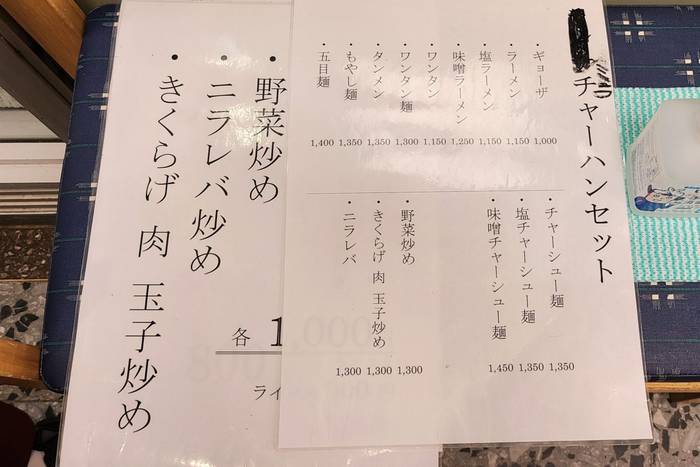 ミニチャーハンセット
・ギョーザ 1,000
・ラーメン 1,150
・塩ラーメン 1,150
・味噌ラーメン 1,250
・ワンタン 1,150
・ワンタン麺 1,300
・タンメン 1,350
・もやし麺 1,350
・五目麺 1,400
・チャーシュー麺 1,350
・塩チャーシュー麺 1,350
・味噌チャーシュー麺 1,450
・野菜炒め 1,300
・きくらげ 肉 玉子炒め 1,300
・ニラレバ 1,300
・野菜炒め
・ニラレバ炒め
・きくらげ 肉 玉子炒め
各 1,000
ライ